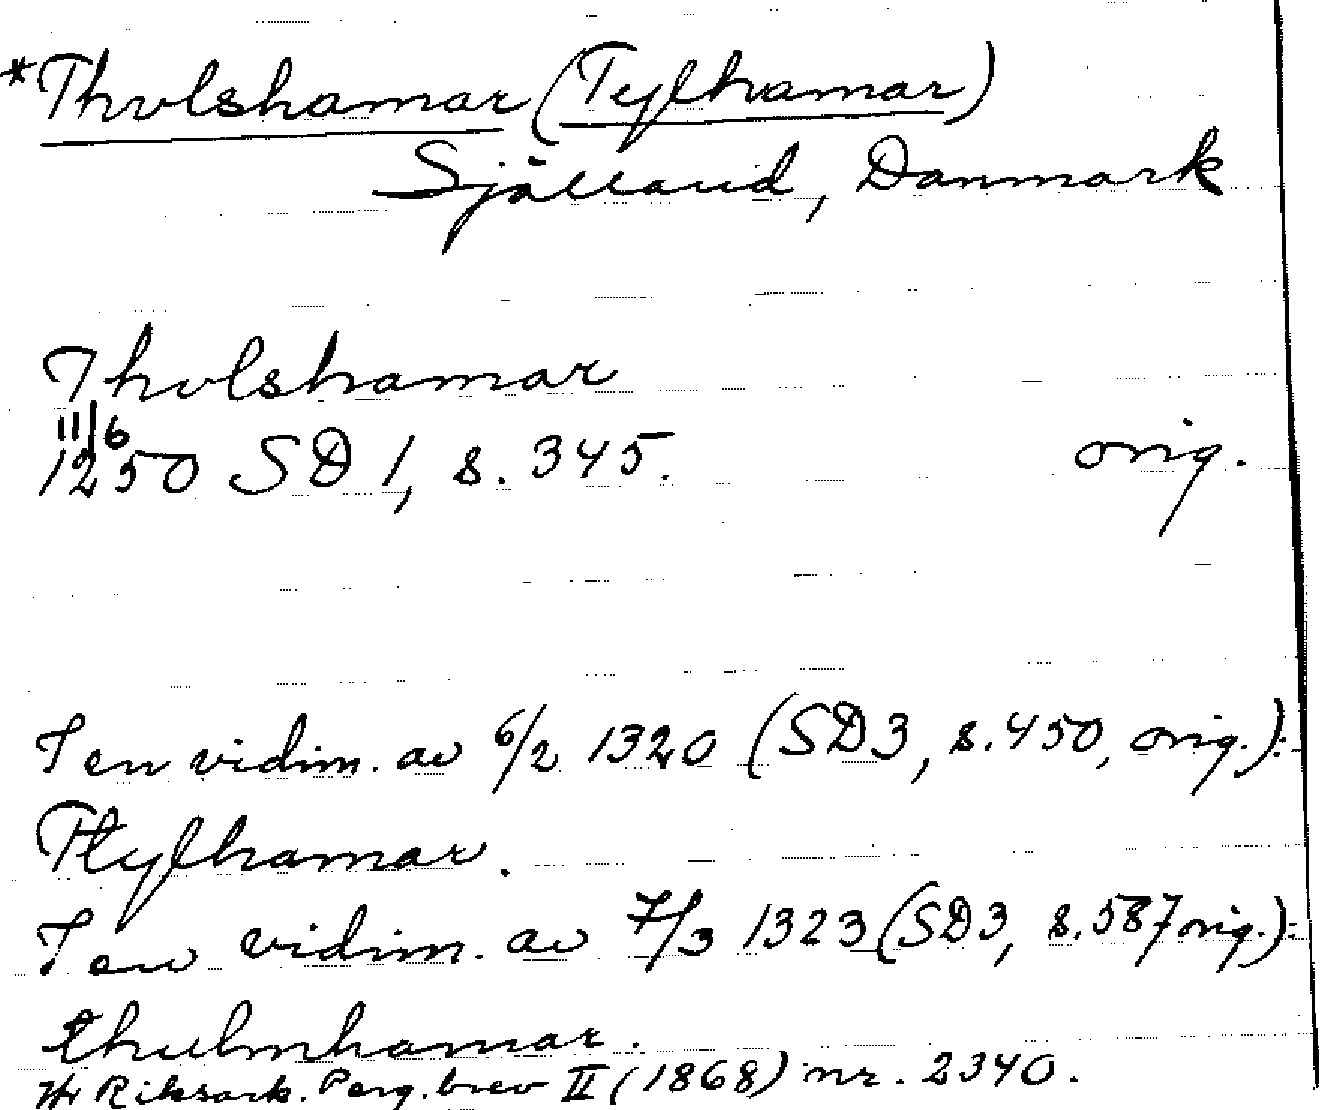 *Thulshamar (Tylhamar)
Själland, Danmark
Thulshamar
11/6
1250 SD 1, s. 345. orig.
I en vidim. av 6/2 1320 (SD3, s. 450, orig.):
Thylhamar.
I en vidim. av 7/3 1323 (SD3, s. 587 orig.):
thulmhamar.
Riksark. Perg. brev II (1868) nr. 2340.